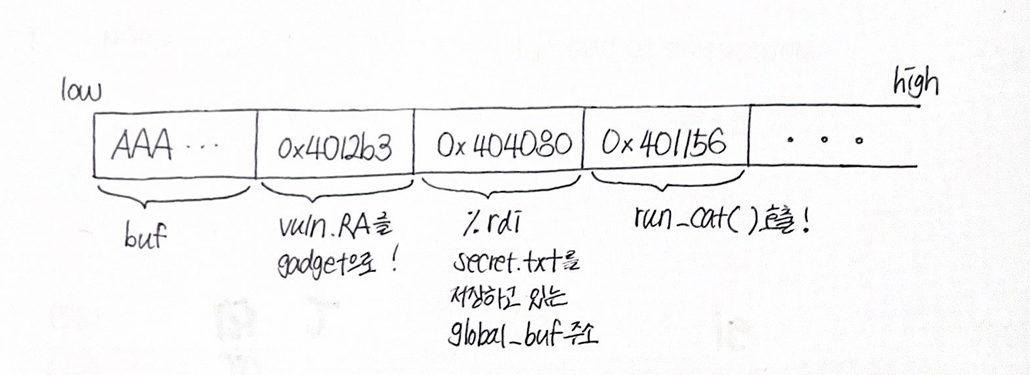 low
high
AAA ...
0x4012b3
0x404080
0x401156
. . .
buf
vuln.RA를
gadget으로 !
%rdi
secret.txt를
저장하고 있는
global_buf 주소
run_cat() 호출!